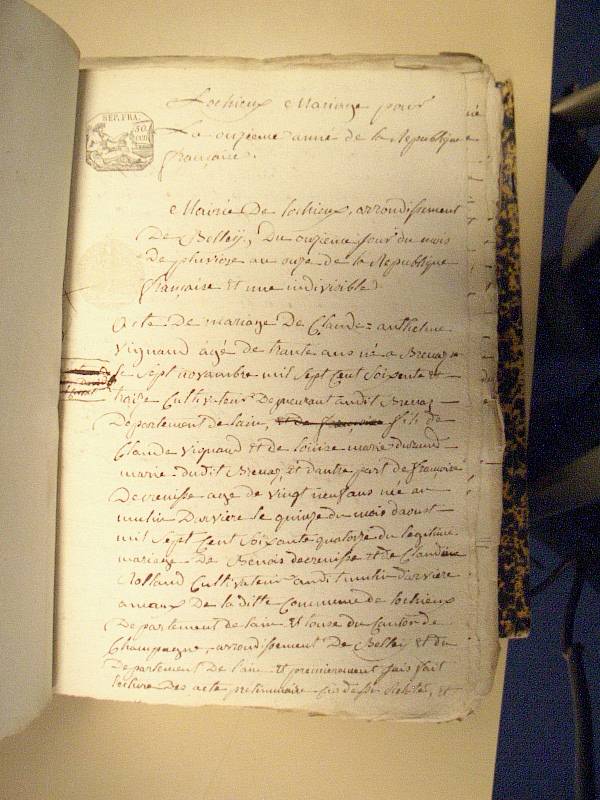 REP. FRA.
50 cen
Lochieux Mariage pour
La onzieme année de la Republique
française.
Mairie De lochieux, arrondissement
De Belley, Du onzieme jour du mois
de pluviose an onze de la Republique
française et une indivisible
Acte De mariage De Claude = anthelme
Vignaud âgé de trante ans né a Brenaz
le sept novembre mil sept cent soixente et
treize Cultivateur Demeurant audit Brenaz
Departement de lain, et de françoise fils de
Claude Vignaud et de louise marie
marie dudit Brenaz, et dautre part de françoise
Decrenisse age de vingt neuf ans née au
mulin Darviere le quinze du mois daoust
mil sept cent soixante quatorze du legitime
mariage De Benois decrenisse et de Claudine
Rolland Cultivateur audit mulin darviere
ameaux De la ditte Commune de lochieux
Departement de lain et touse du Canton de
Champagne, arrondissement De Belley et du
Departement De lain et premierement fais fait
lecture Des acte preliminaire et